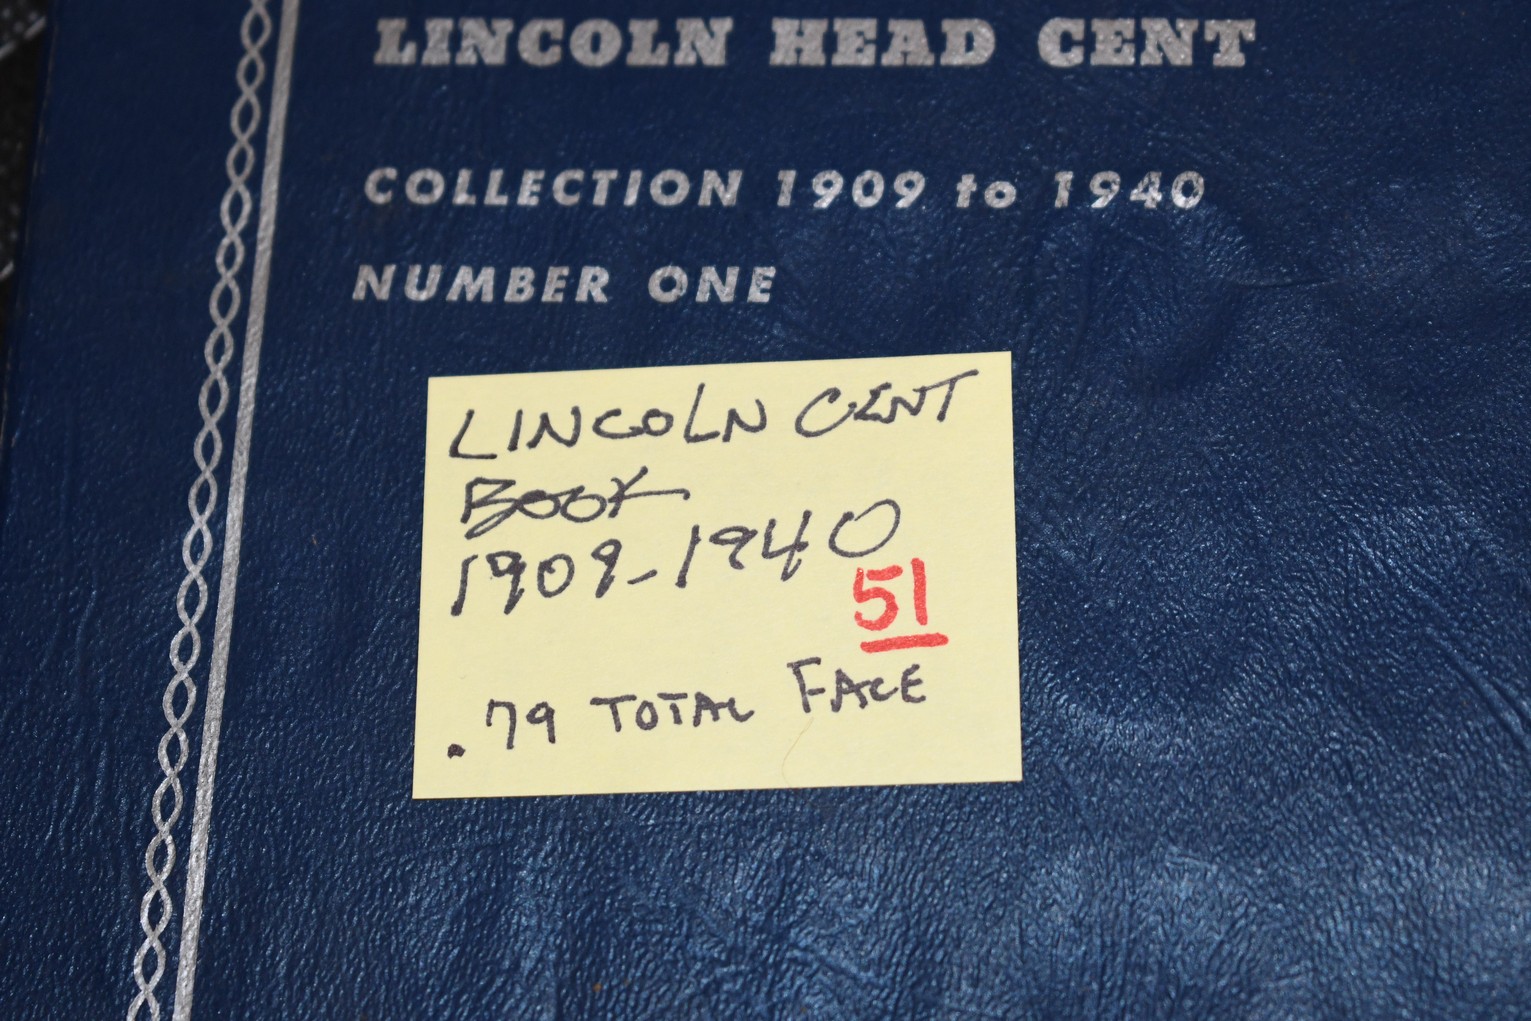 LINCOLN HEAD CENT
COLLECTION 1909 to 1940
NUMBER ONE
LINCOLN CENT
BOOK
1909-1940
51
.79 TOTAL FACE